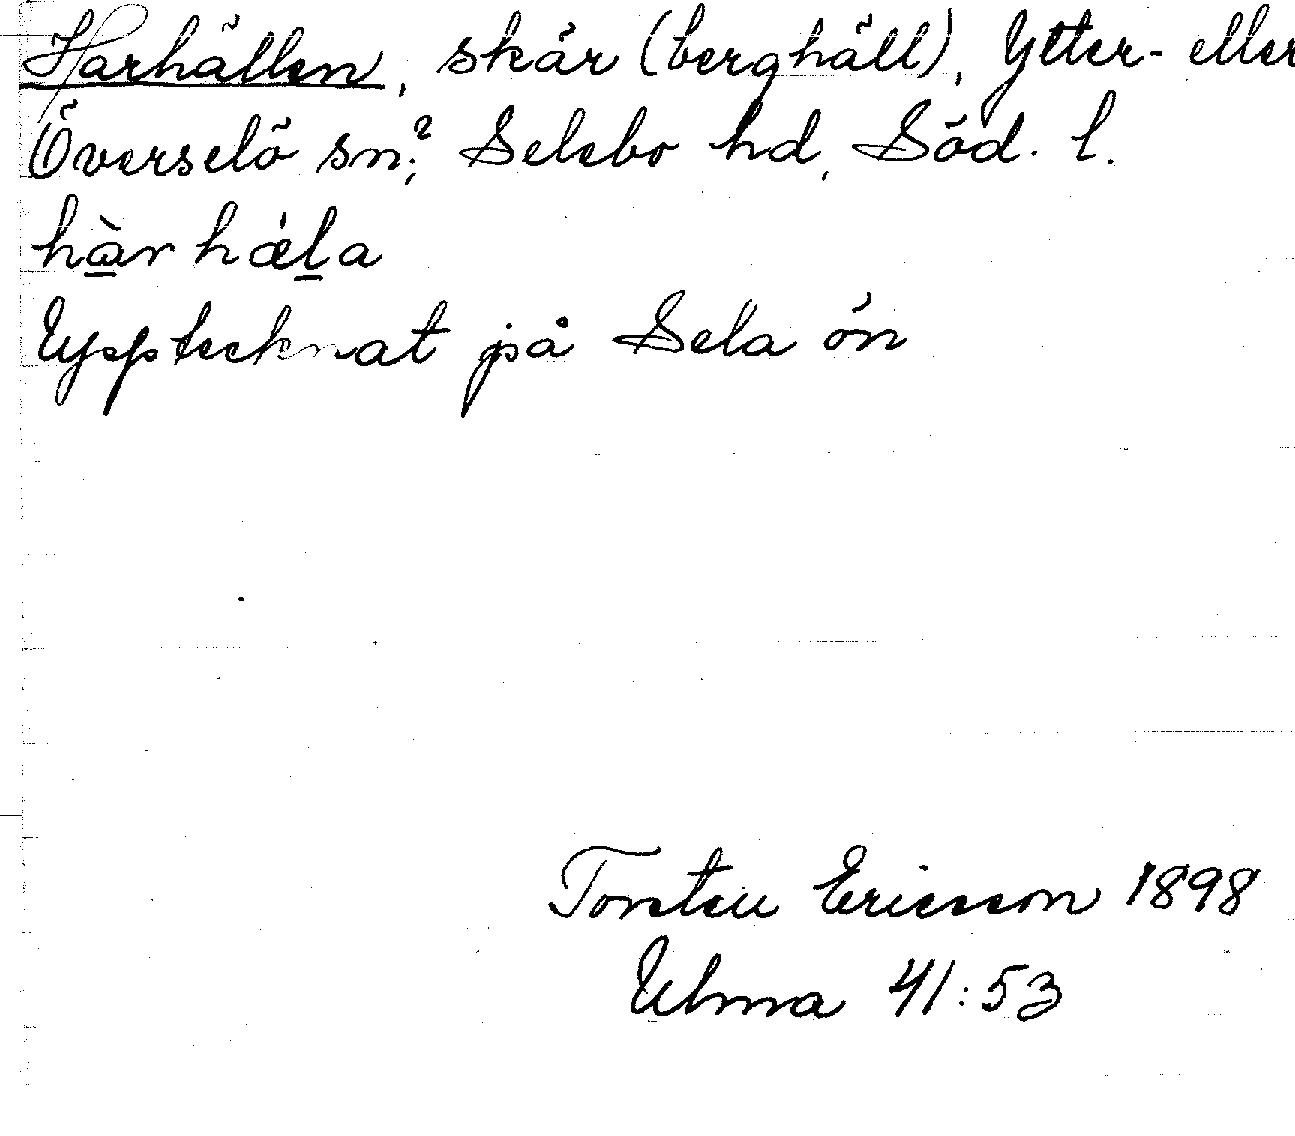 Harhällen, skär (berghäll), Ytter- eller
Överselö sn;? Selebo hd, Söd. l.
hàr hǽla
Upptecknat på Sela ön
Torsten Ericsson 1898
Ulma 41:53